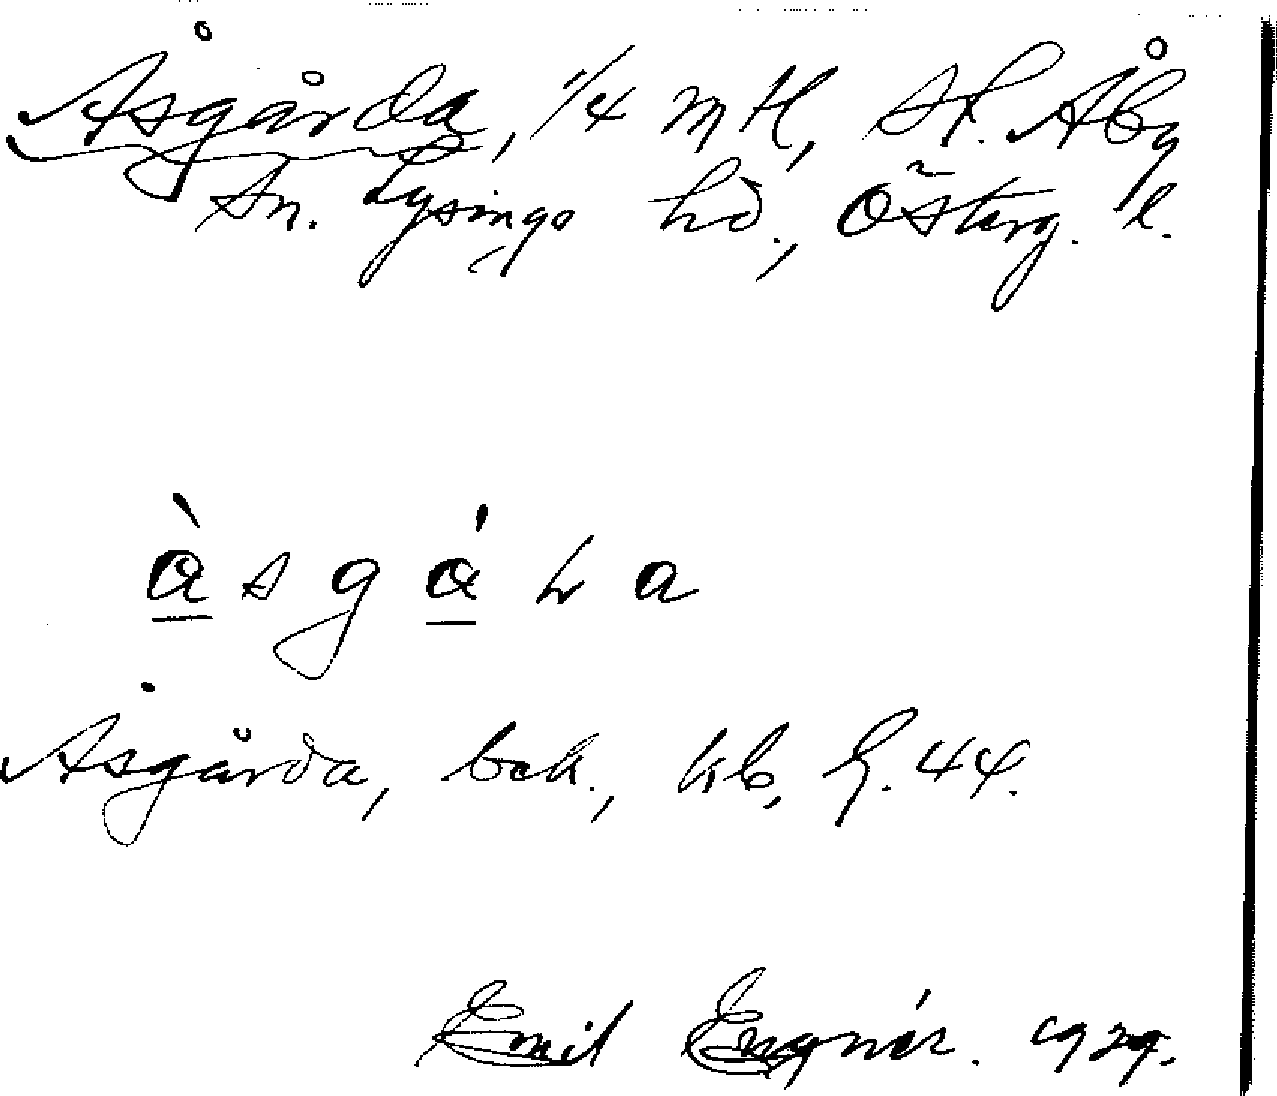 Åsgårda, 1/4 mtl, St. Åby
Sn. Lysings hd., Österg. l.
àsgára
Åsgårda, bek., kb, G. 44.
Emil Engnér. 1929.